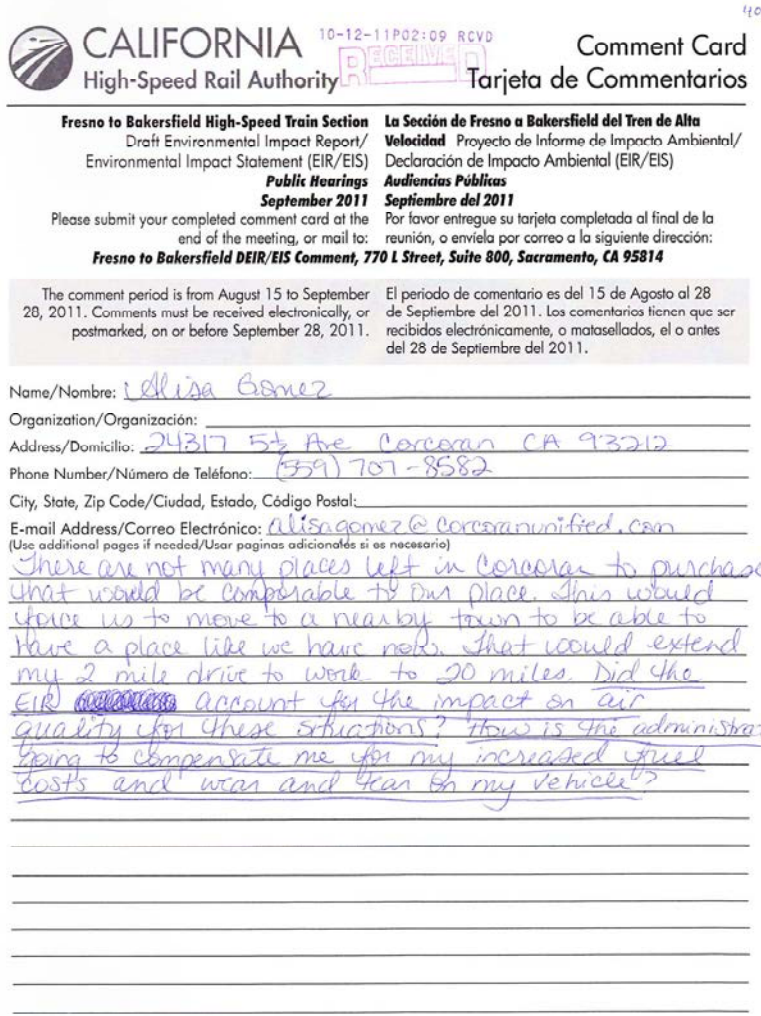 40
CALIFORNIA
High-Speed Rail Authority
10-12-11P02:09 RCVD
RECEIVED
Comment Card
Tarjeta de Commentarios
Fresno to Bakersfield High-Speed Train Section
Draft Environmental Impact Report/
Environmental Impact Statement (EIR/EIS)
Public Hearings
September 2011
Please submit your completed comment card at the
end of the meeting, or mail to:
La Sección de Fresno a Bakersfield del Tren de Alta
Velocidad Proyecto de Informe de Impacto Ambiental/
Declaración de Impacto Ambiental (EIR/EIS)
Audiencias Públicas
Septiembre del 2011
Por favor entregue su tarjeta completada al final de la
reunión, o envíela por correo a la siguiente dirección:
Fresno to Bakersfield DEIR/EIS Comment, 770 L Street, Suite 800, Sacramento, CA 95814
The comment period is from August 15 to September
28, 2011. Comments must be received electronically, or
postmarked, on or before September 28, 2011.
El periodo de comentario es del 15 de Agosto al 28
de Septiembre del 2011. Los comentarios tienen que ser
recibidos electrónicamente, o matasellados, el o antes
del 28 de Septiembre del 2011.
Name/Nombre: Alisa Gomez
Organization/Organización:
Address/Domicilio: 24317 5½ Ave Corcoran CA 93212
Phone Number/Número de Teléfono: (559) 707-8582
City, State, Zip Code/Ciudad, Estado, Código Postal:
E-mail Address/Correo Electrónico: alisagomez@corcoranunified.com
(Use additional pages if needed/Usar paginas adicionales si es necesario)
There are not many places left in Corcoran to purchase
that would be comporable to our place. This would
force us to move to a nearby town to be able to
have a place like we have now. That would extend
my 2 mile drive to work to 20 miles. Did the
EIR account for the impact on air
quality for these situations? How is the administra
going to compensate me for my increased fuel
costs and wear and tear on my vehicle?